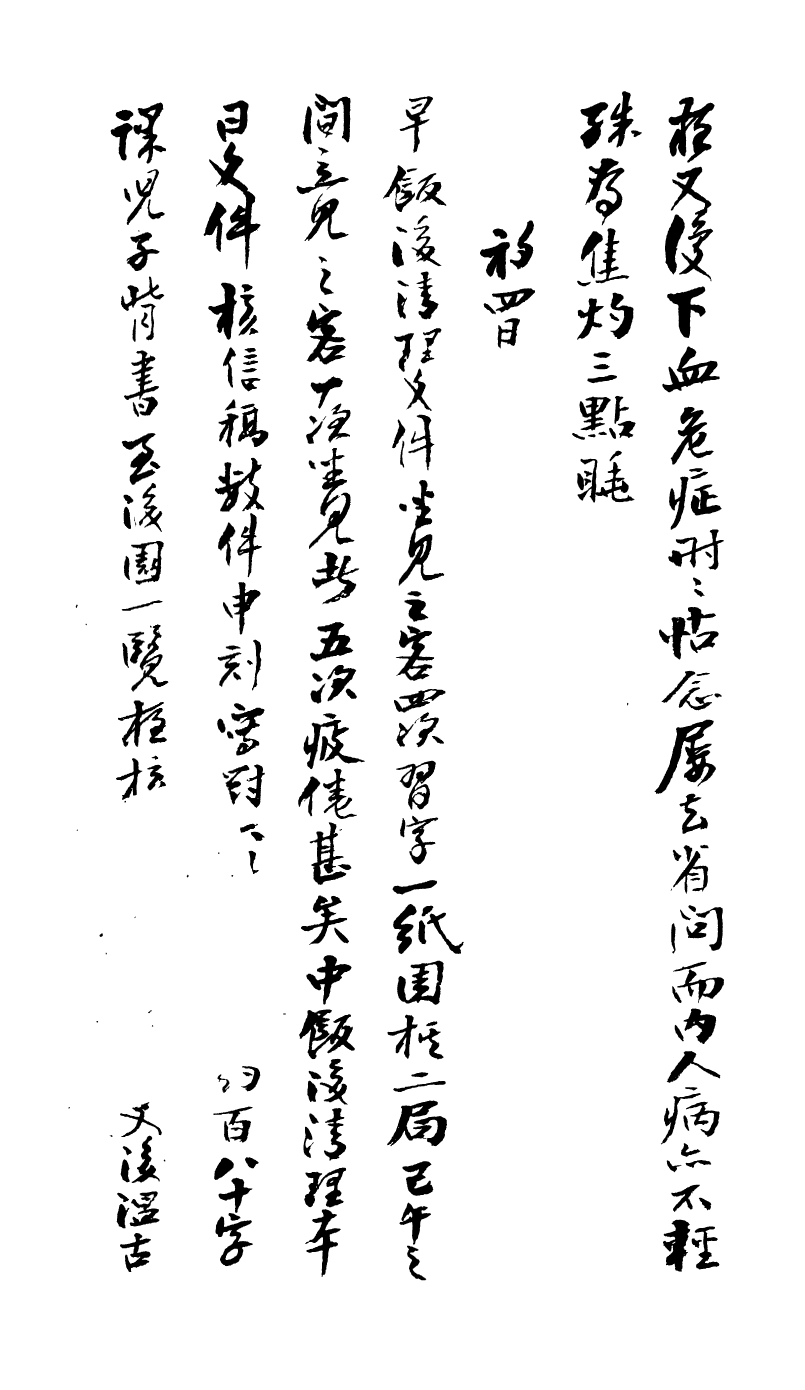 又復下血危症時〻怙念屢去省問而內人病亦不輕
殊為焦灼三點睡
初四日
早飯後清理文件坐見之客四次習字一紙圍棋二局已午之
間立見之客十次坐見者五次疲倦甚矣中飯後清理本
日文件核信稿數件申刻寫對 百八十字
課兒子背書至後園一覽 核 文後溫古